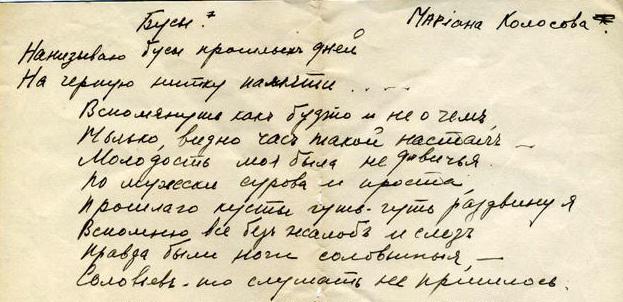 Бусы.* Маріана Колосова*.
Нанизываю бусы прошлыхъ дней
На черную нитку памяти . . . .
Вспомянуть какъ будто и не о чемъ,
Только, видно часъ такой насталъ —
Молодость моя была не дѣвичья.
По мужски сурова и проста,
Прошлаго кусты чуть-чуть раздвину я
Вспомню все безъ жалобъ и слезъ
Правда были ночи соловьиныя, —
Соловьевъ-то слушать не пришлось.